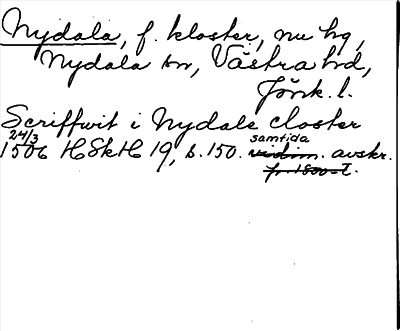 Nydala, f. kloster, nu hg,
Nydala sn, Västra hd,
Jönk. l.
Scriffwit i Nydale closter
24/3 samtida
1506 HSkH 19, s. 150. vidim. avskr.
fr. 1500-t.